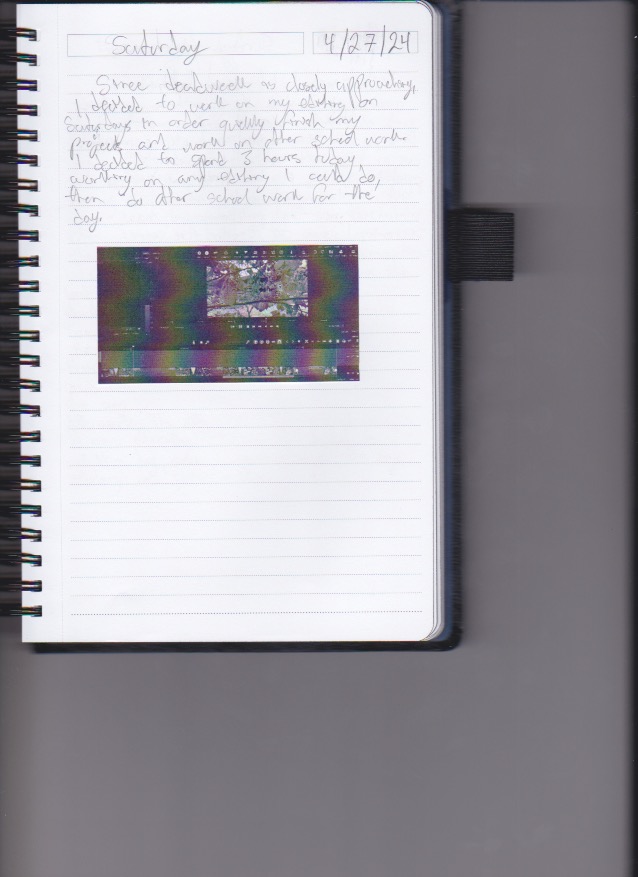 Saturday
4/27/24
Since deadweek is closely approaching,
I decided to work on my editing on
Saturdays in order quickly finish my
project and work on other school work.
I decided to spend 3 hours today
working on any editing I could do,
then do other school work for the
day.